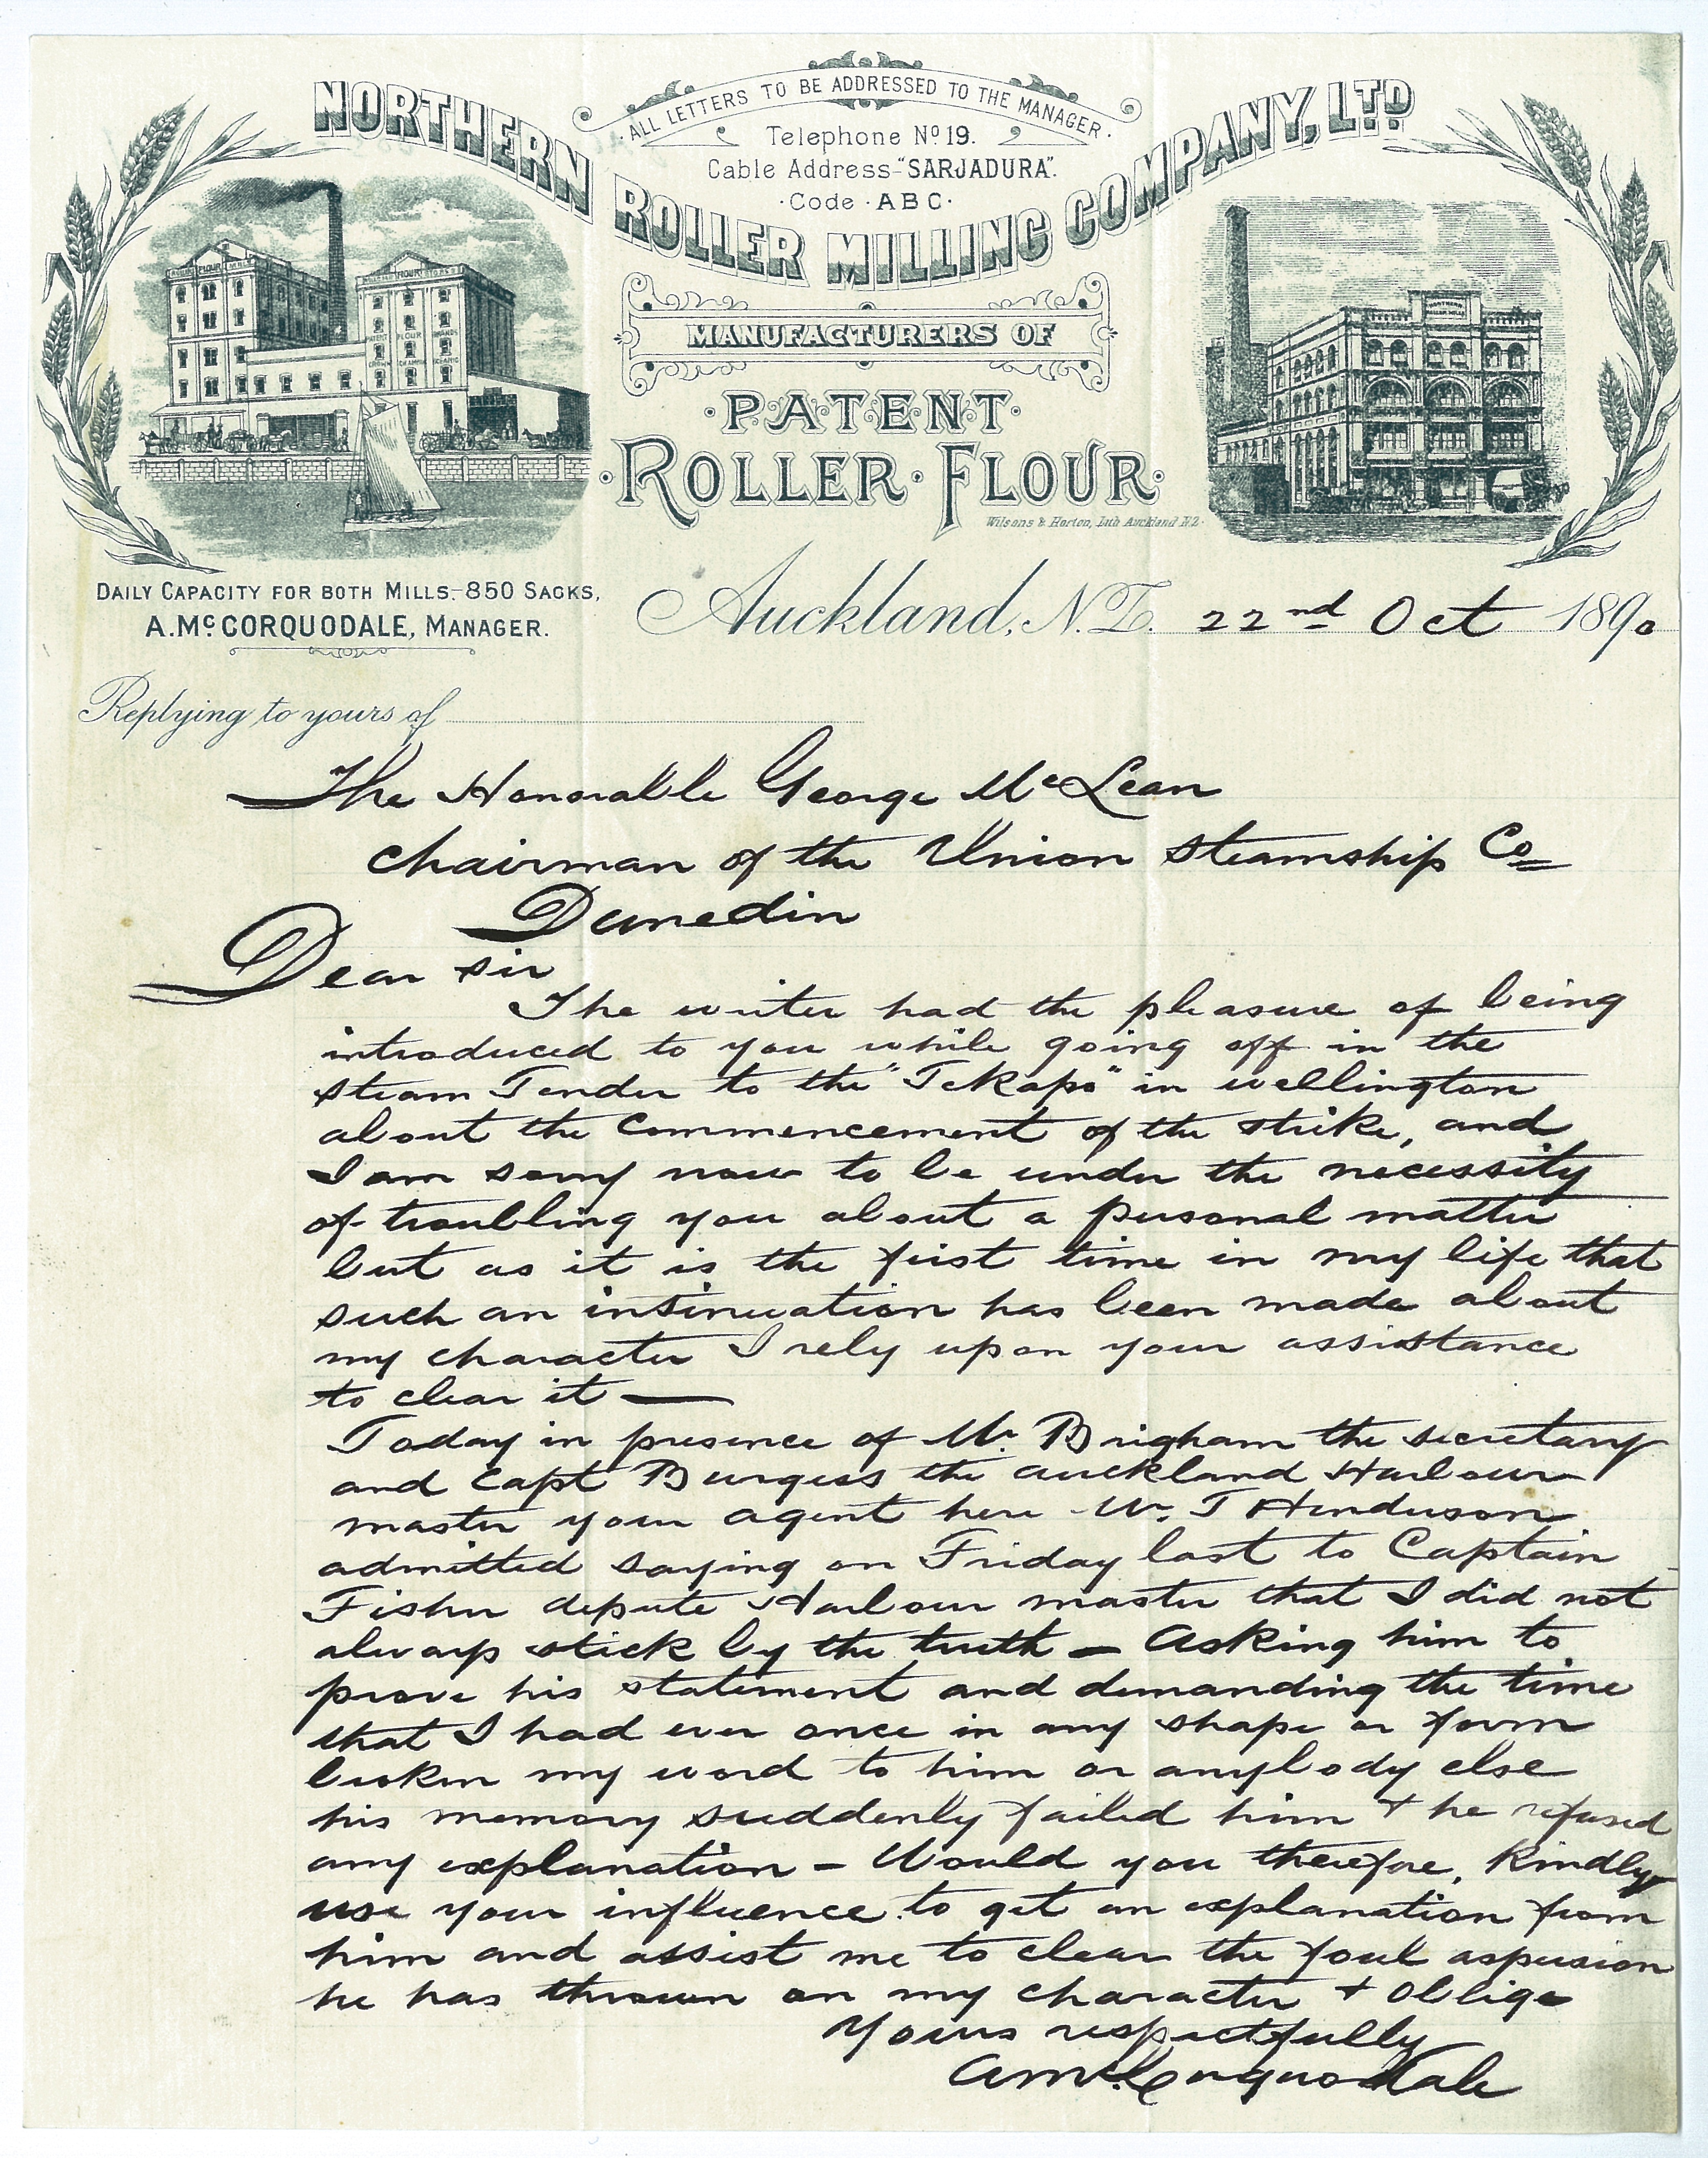 NORTHERN ROLLER MILLING COMPANY, LTD
·ALL LETTERS TO BE ADDRESSED TO THE MANAGER·
Telephone No 19.
Cable Address-"SARJADURA".
·Code·ABC·
MANUFACTURERS OF
·PATENT·
·ROLLER·FLOUR·
Wilsons & Horton, Lith Auckland N.Z.
DAILY CAPACITY FOR BOTH MILLS.-850 SACKS,
A. McCORQUODALE, MANAGER.
Auckland, N.Z. 22nd Oct 1890
Replying to yours of
The Honorable George McLean
Chairman of the Union Steamship Co
Dunedin
Dear Sir
The writer had the pleasure of being
introduced to you while going off in the
steam Tender to the "Tekapo" in wellington
about the commencement of the strike, and
I am sorry now to be under the necessity
of troubling you about a personal matter
but as it is the first time in my life that
such an insinuation has been made about
my character I rely upon your assistance
to clear it —
Today in presence of Mr. Brigham the secretary
and Capt Burgess the Auckland Harbour
master your agent here Mr. T Henderson
admitted saying on Friday last to Captain
Fisher depute Harbour master that I did not
always stick by the truth — Asking him to
prove his statement and demanding the time
that I had ever once in any shape or form
broken my word to him or anybody else
his memory suddenly failed him + he refused
any explanation — Would you therefore, kindly
use your influence to get an explanation from
him and assist me to clear the foul aspersion
he has thrown on my character + oblige
Yours respectfully
A McCorquodale